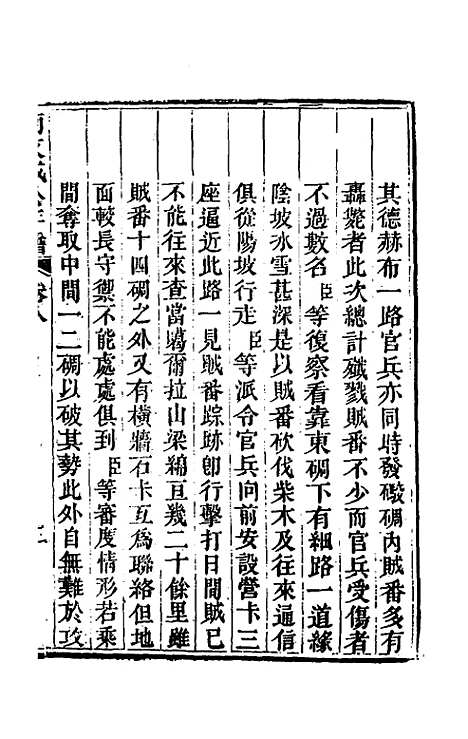 其德赫布一路官兵亦同時發礮碉內賊番多有
轟斃者此次總計殲戮賊番不少而官兵受傷者
不過數名臣等復察看靠東碉下有細路一道緣
陰坡冰雪甚深是以賊番砍伐柴木及往來通信
俱從陽坡行走臣等派令官兵向前安設營卡三
座逼近此路一見賊番踪跡卽行擊打日間賊已
不能往來查當噶爾拉山梁綿亘幾二十餘里雖
賊番十四碉之外又有橫牆石卡互爲聯絡但地
面較長守禦不能處處俱到臣等審度情形若乘
間奪取中間一二碉以破其勢此外自無難於攻
卷八